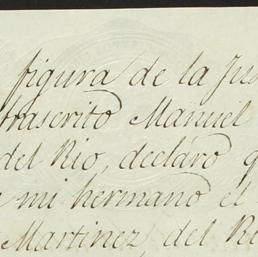 figura de la
trascrito Manuel
del Rio, declaro
mi hermano el
Martinez, del